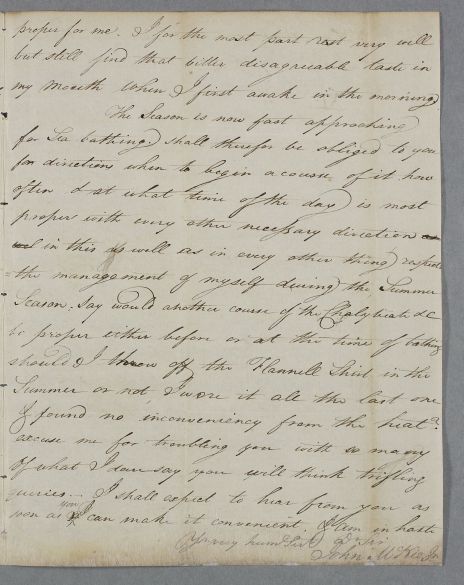 proper for me. I for the most part rest very well
but still find that bitter disagreeable taste in
my mouth when I first awake in the morning
The Season is now fast approaching
for Sea bathing shall therefor be obliged to you
for directions when to begin a course of it how
often & at what time of the day is most
proper with every other necessary direction
in this as well as in every other thing
the management of myself during the Summer
Season. Say would another course of the Chalybeate &c
be proper either before or at the time of bathing
should I throw off the Flannell Shirt in the
Summer or not, I wore it all the last one
& found no inconveniency from the heat
excuse me for troubling you with so many
of what I dare say you will think trifling
queries — I shall expect to hear from you as
soon as you can make it convenient. I am in haste
Yr very humle Servt Dr Sir
John McKee